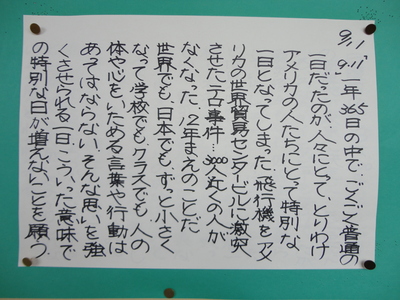 9.11
"9.11" 一年365日の中で、ごくごく普通の
一日だったのが、人々にとって、とりわけ
アメリカの人たちにとって特別な
一日となってしまった。飛行機をアメ
リカの世界貿易センタービルに激突
させたテロ事件…3000人近くの人が
なくなった。12年まえのことだ
世界でも、日本でも、ずっと小さく
なって学校でも、クラスでも、人の
体や心をいためる言葉や行動は
あってはならない。そんな思いを強
くさせられる一日。こういった意味で
の特別な日が増えないことを願う。